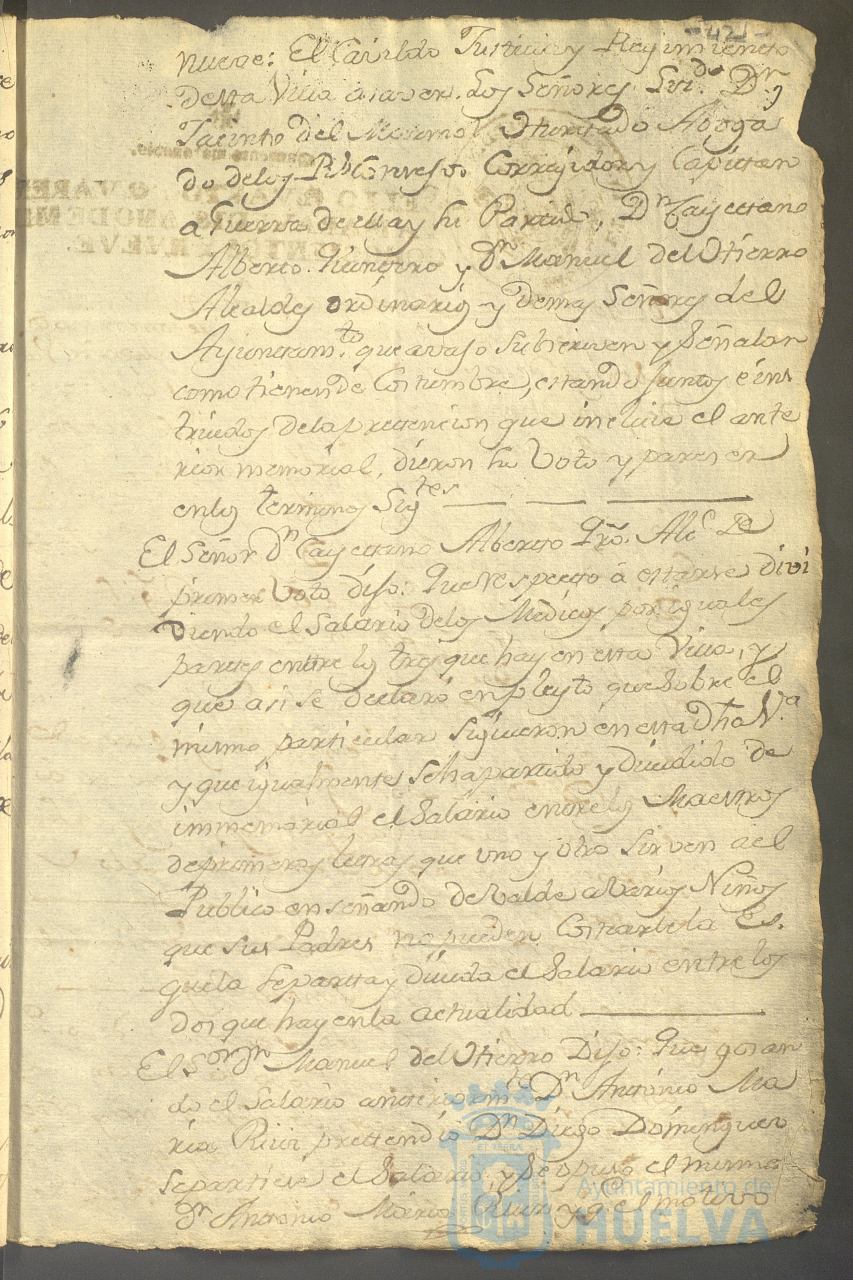 -421-
nueve: El Cavildo Justicia y Regimiento
desta Villa a saver. Los Señores Lizdo Dn
Jacinto del Marmol Hurtado Aboga
do delos Rs Consejos Correjidor y Capitan
a Guerra de ella y su Partido, Dn Cayetano
Alberto Quintero y Dn Manuel del Hierro
Alcaldes Ordinarios y demas Señores del
Ayuntamto que avajo subscriven y señalan
como tienen de Costumbre, estando juntos e ins
truidos dela pretencion que incluie el ante
rior memorial, dieron su Voto y parecer
enlos terminos Sigtes
El Señor Dn Cayetano Alberto Qro. Alce De
primer Voto dijo: Que respecto á estarse divi
diendo el Salario delos Medicos por iguales
partes entre los tres que hay en esta Villa, y
que asi se declaró en pleyto que sobre el
mismo particular siguieron en esta Dha Va
y que igualmente se ha partido y dividido de
immemorial el Salario entre los Maestros
de primeras letras que uno y otro sirven a el
Publico enseñando de valde a varios Niños
que sus Padres no pueden Costearles la Es.
quela se parta y divida el Salario entre los
dos que hay en la actualidad
El Sor Dn Manuel del Hierro Dijo: Que gosan
do el Salario anteriormte Dn António Ma
ria pretendió Dn Diego Dominguez
separtiese el Salario, y se opuso el mismo
Dn Antonio Maria y q el motivo
Ayuntamiento de
HUELVA